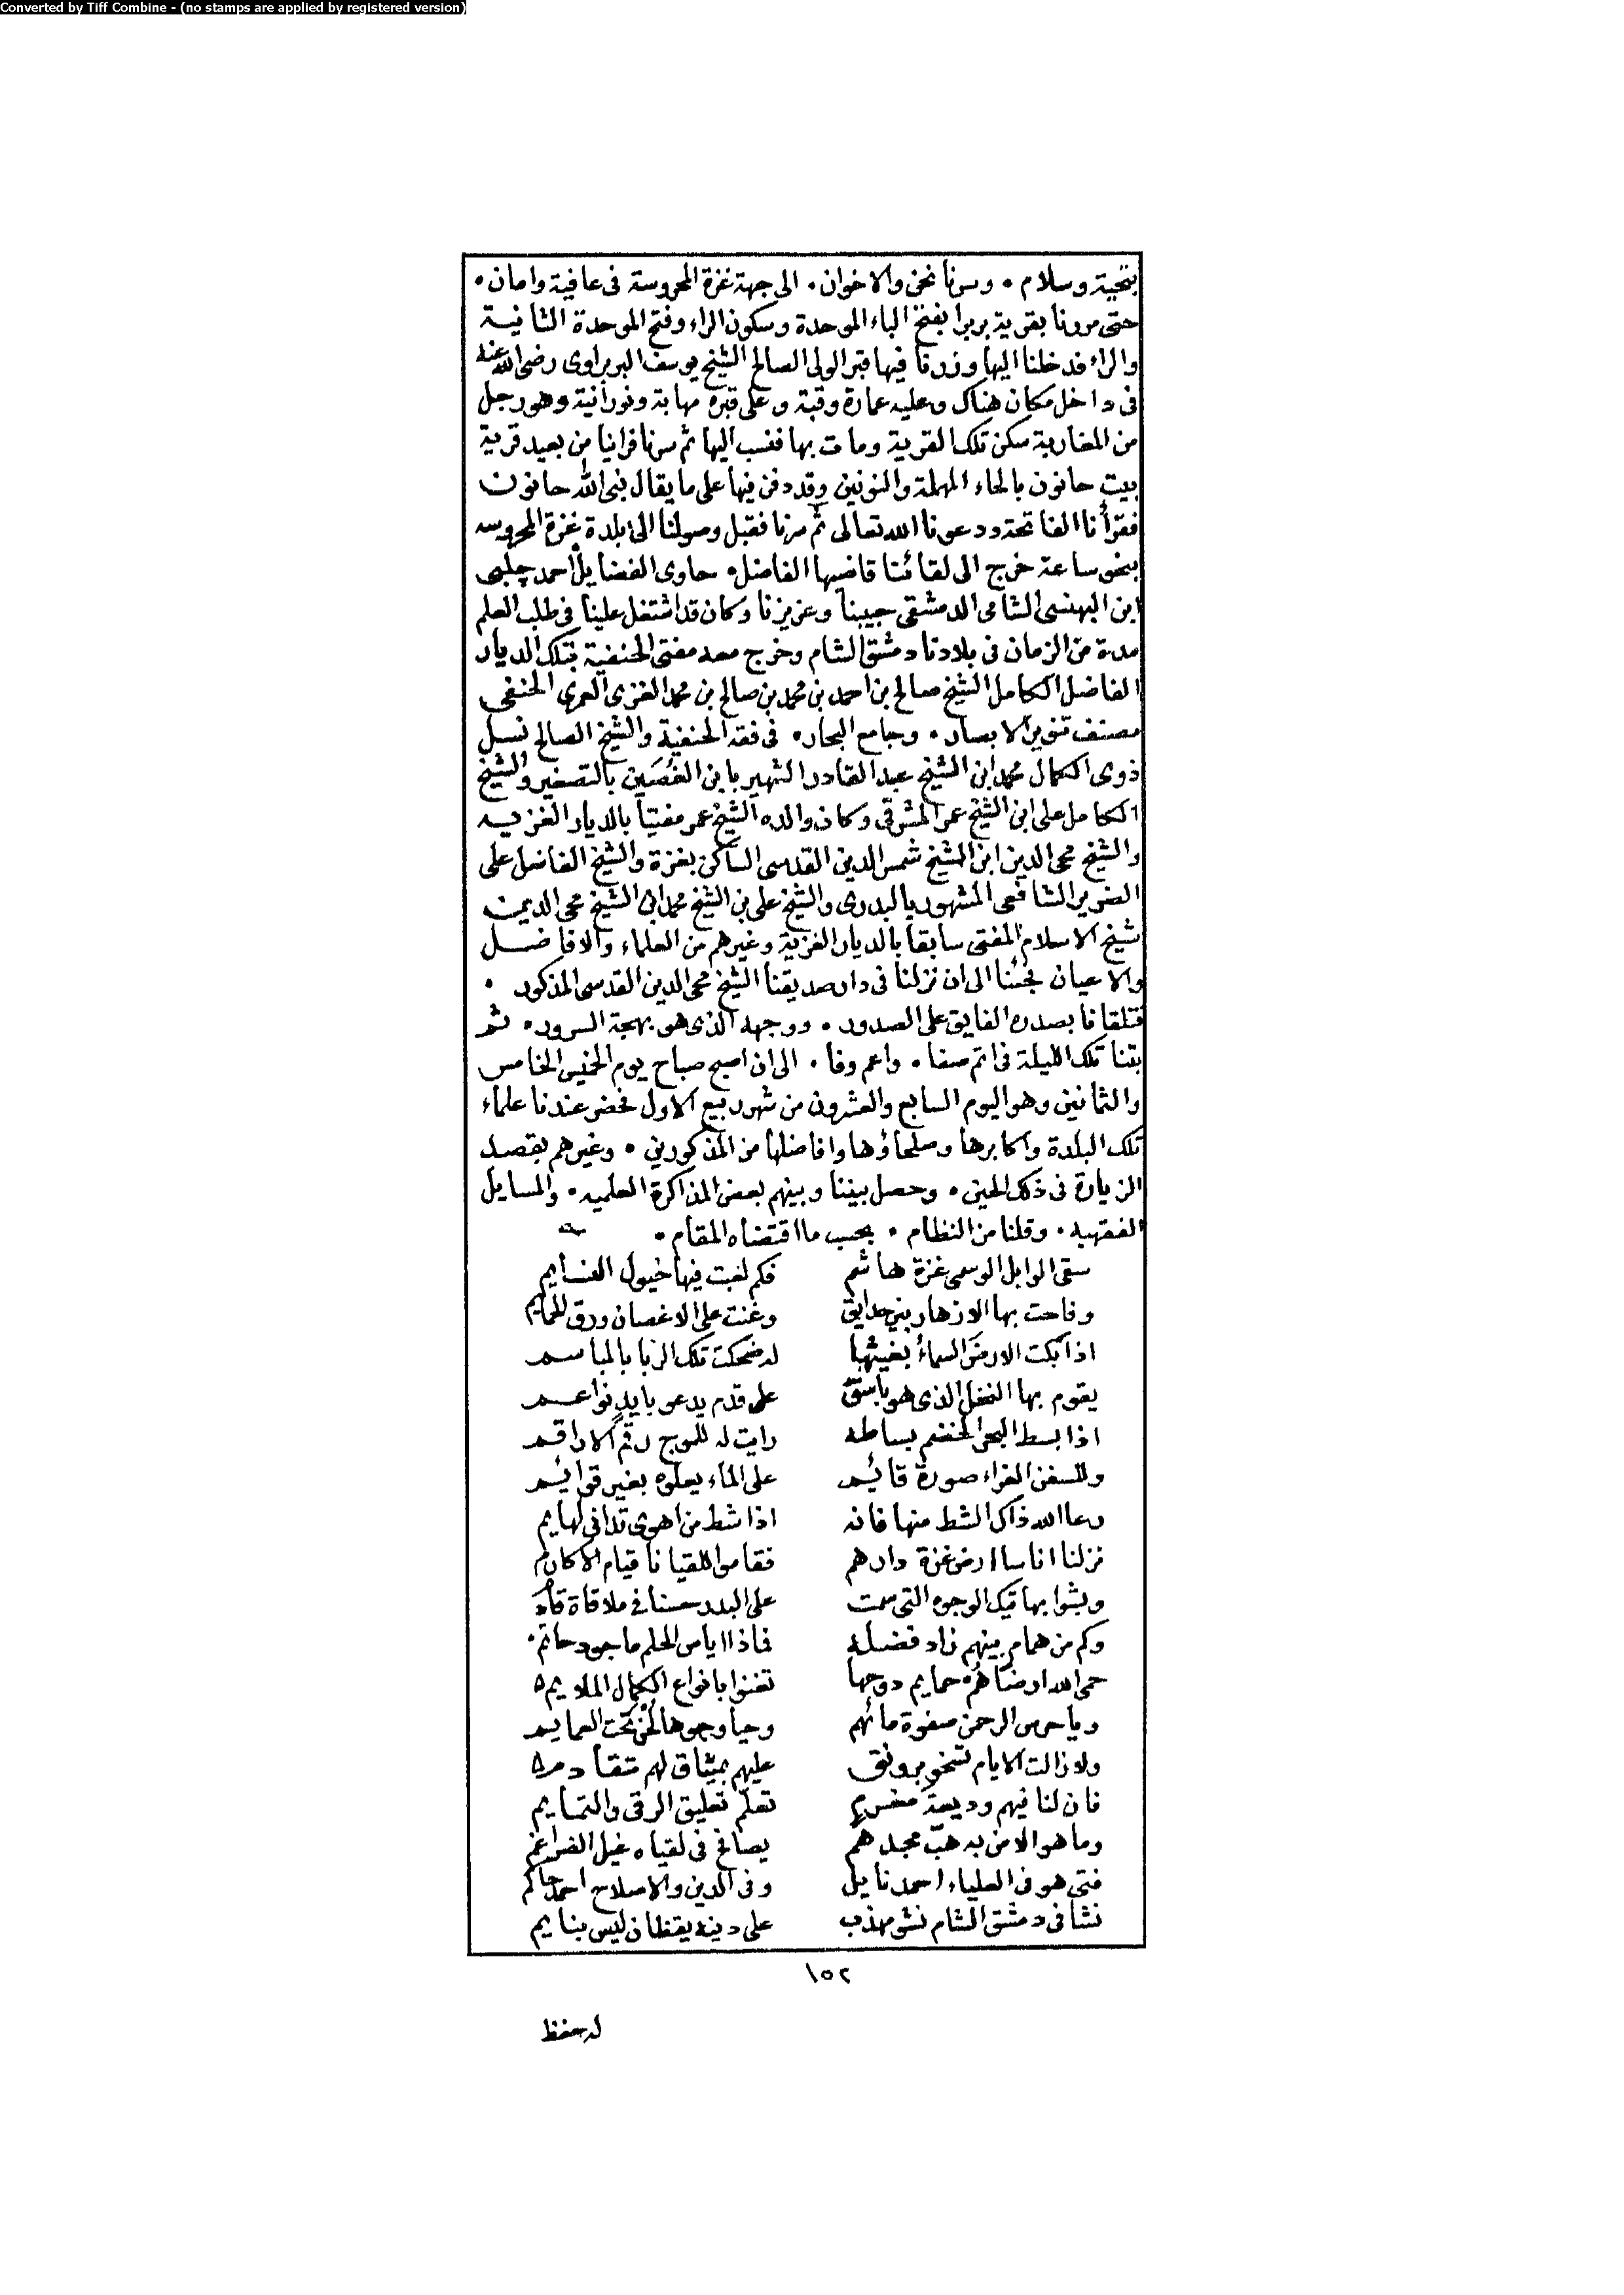 Converted by Tiff Combine - (no stamps are applied by registered version)
بتحية وسلام • وسرنا نحن والاخوان • الى جهة غزة المحروسة فى عافية وامان •
حتى مررنا بقرية بربرا بفتح الباء الموحدة وسكون الراء وفتح الموحدة الثانية
والراء فدخلنا اليها وزرنا فيها قبر الولى الصالح الشيخ يوسف البربراوى رضى الله عنه
فى داخل مكان هناك وعليه عمارة وقبة وعلى قبره مهابة ونورانية وهو رجل
من المغاربة سكن تلك القرية ومات بها فنسب اليها ثم سرنا فراينا من بعيد قرية
بيت حانون بالحاء المهملة والنونين وقد دفن فيها على ما يقال نبى الله حانون
فقرأنا الفاتحة ودعونا الله تعالى ثم سرنا فقبل وصولنا الى بلدة غزة المحروسه
بنحو ساعة خرج الى لقائنا قاضيها الفاضل • حاوى الفضايل احمد چلبى
ابن البهنسى الشامى الدمشقى حبيبنا وعزيزنا وكان قد اشتغل علينا فى طلب العلم
مدة من الزمان فى بلادنا دمشق الشام وخرج معه مفتى الحنفية بتلك الديار
الفاضل الكامل الشيخ صالح بن احمد بن محمد بن صالح بن محمد الغزى العمرى الحنفى
مصنف تنوير الابصار • وجامع البحار • فى فقه الحنفية والشيخ الصالح نسل
ذوى الكمال محمد ابن الشيخ عبد القادر الشهير بابن الغُصَين بالتصغير والشيخ
الكامل على ابن الشيخ عمر المشرقى وكان والده الشيخ عمر مفتيا بالديار الغزيه
والشيخ محى الدين ابن الشيخ شمس الدين القدسى الساكن بغزة والشيخ الفاضل على
الضرير الشافعى المشهور بالبدرى والشيخ على بن الشيخ محمد ابن الشيخ محى الدين
شيخ الاسلام المفتى سابقا بالديار الغزية وغيرهم من العلماء والافاضل
والاعيان فجئنا الى ان نزلنا فى دار صديقنا الشيخ محى الدين القدسى المذكور •
فتلقانا بصدره الفايق على الصدور • ووجهه الذى هو بهجة السرور • ثم
بتنا تلك الليلة فى اتم صفا • واعم وفا • الى ان اصبح صباح يوم الخميس الخامس
والثمانين وهو اليوم السابع والعشرون من شهر ربيع الاول فحضر عندنا علماء
تلك البلدة واكابرها وصلحاؤها وافاضلها من المذكورين • وغيرهم بقصد
الزيارة فى ذلك الحين • وحصل بيننا وبينهم بعض المذاكرة العلميه • والمسايل
الفقهيه • وقلنا من النظام • بحسب ما اقتضاه المقام •
سقى الوابل الوسمى غزة هاشم فكم لعبت فيها خيول النسايم
وفاحت بها الازهار بين حدايق وغنت على الاغصان ورق الحمايم
اذا بكت الارضَ السماءُ بغيثها له ضحكت تلك الربا بالمباسم
يقوم بها النخل الذى هو باسق على قدم يدعو بايدٍ نواعم
اذا بسط البحر الخضم بساطه رايت له للموج رقم الاراقم
وللسفن الغراء صورة قائم على الماء يعلوه بغير قوائم
رعا الله ذاك الشط منها فانه اذا شط من اهوى تدانى لهايم
نزلنا اناسا ارض غزة دارهم فقاموا للقيانا قيام الاكارم
وبشوا بهاتيك الوجوه التى سمت على البدر حسنا فى ملاقاة قادم
وكم من همام بينهم زاد فضله فاذا اياس الحلم ما جود حاتم •
حمى الله ارضا هُم حمايم دوحها تغنوا بانواع الكمال الملايم
ويا حرس الرحمن صفوة مائهم وحيا وجوها لُحْنَ تحت العمايم
ولا زالت الايام تسخو برونق عليهم بميثاق لهم متقادم
فان لنا فيهم وديعة مغرم تعلّم تعليق الرقى والتمايم
وما هو الا من به هبّ مجدهم يصافح فى لقياه غيل الضراغم
فتى هو فى العلياء احمد نايل وفى الدين والاصلاح احمد حاكم
نشا فى دمشق الشام نشو مهذب على دينه يقظان ليس بنايم
١٥٢
له حفظ